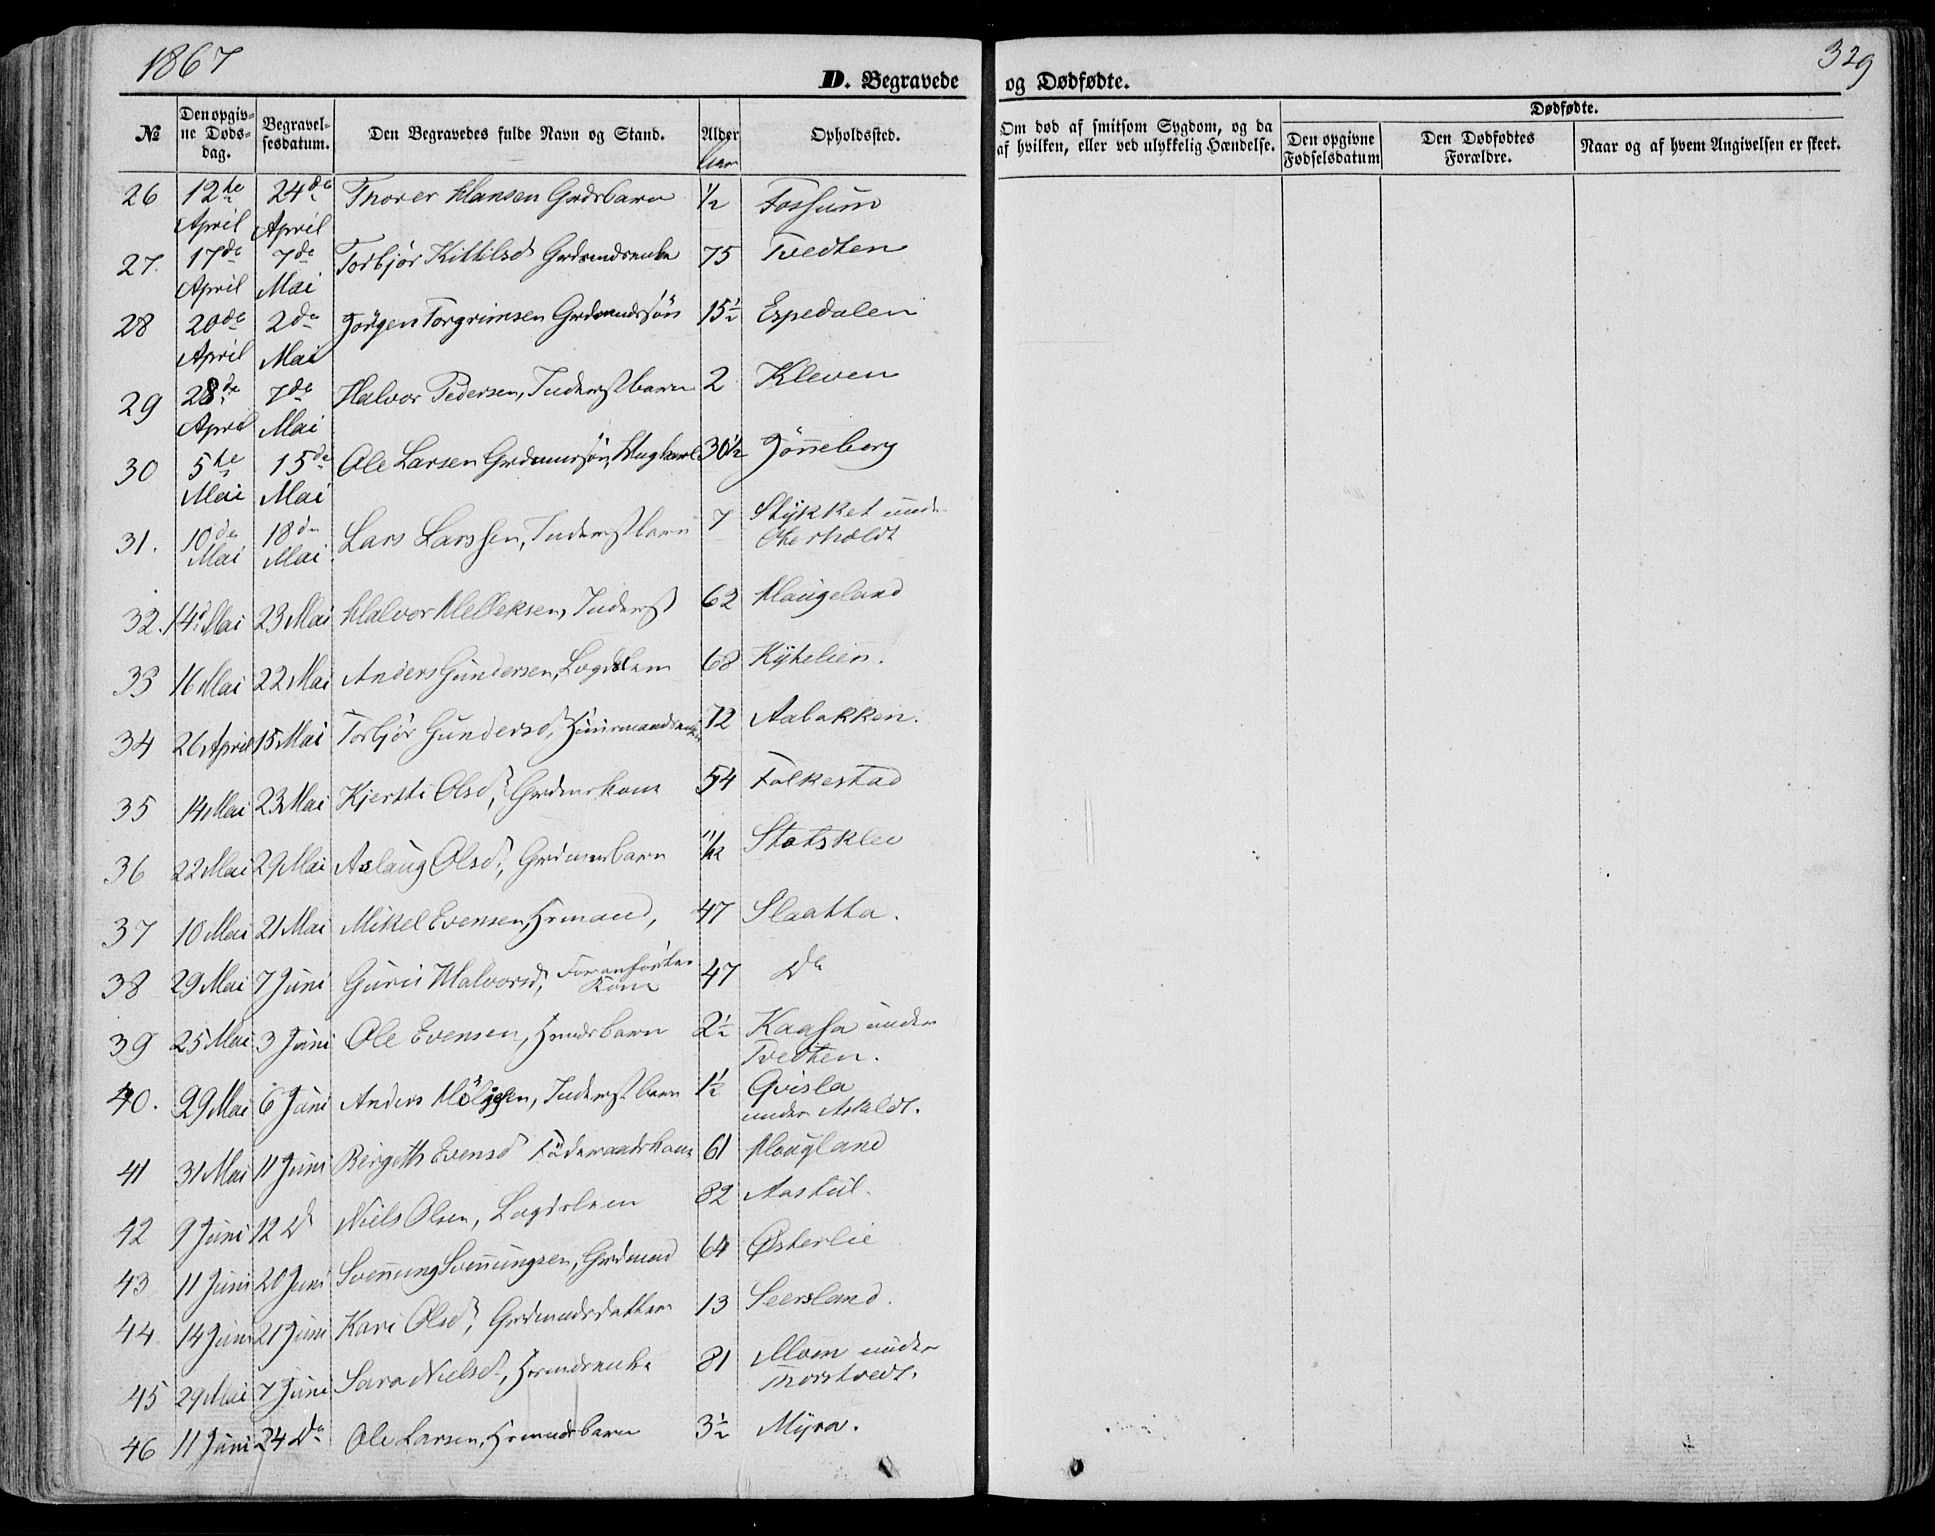 1867
329
D. Begravede og Dødfødte.
№
Den opgiv-
ne Døds-
dag.
Begravel-
sesdatum.
Den Begravedes fulde Navn og Stand.
Alder
Opholdssted.
Om død af smitsom Sygdom, og da
af hvilken, eller ved ulykkelig Hændelse.
Dødfødte.
Den opgivne
Fødselsdatum
Den Dødfødtes
Forældre.
Naar og af hvem Angivelsen er skeet.
26 12te April 24de April Thorer Hansen Grdsbarn ½ Fossum
27. 17de April 7de Mai Torbjør Kittilsd Grdmdsenke 75 Tvedten
28 20de April 2de Mai Jörgen Torgrimsen Grdmandssön 15½ Espedalen
29 28de April 7de Mai Halvor Pedersen, Inderstbarn 2 Kleven
30 5te Mai 15de Mai Ole Larsen Grdmanssön, 30½ Jönneberg
31. 10de Mai 18de Mai Lars Larssen, Inderstbarn 7 Stykket under
Okerholdt
32. 14d Mai 23 Mai Halvor Melleksen, Inderst 62 Haugeland
33 16 Mai 22 Mai Anders Gundersen, Lægdslem 68 Kykelien.
34 26 April 15 Mai Torbjör Gundersd, Huusmandsenke 72 Aabakken.
35 14 Mai 23 Mai Kjersti Olsd, Grdmskone 54 Folkestad
36 22 Mai 29 Mai Aslaug Olsd, Grdmsbarn 11/12 Statsklev
37 10 Mai 21 Mai Mikel Evensen, Hsmand, 47 Slaatta.
38 29 Mai 7 Juni Guroi Halvorsd, Foranförtes
Kone 47 Do
39 25 Mai 3 Juni Ole Evensen, Hsmdsbarn 2½ Kaasa under
Tvedten.
40. 29 Mai 6 Juni Anders Hölj​esen, Inderstbarn 1½ Qvisla
under Askildt.
41 31 Mai 11 Juni Bergith Evensd Föderaadskone 61 Hougland
42 9 Juni 12 Do Niels Olsen, Lægdslem 82 Aastul.
43 11 Juni 20 Juni Svenung Svenungsen, Grdmand 64 Østerlie
44 14 Juni 21 Juni Kari Olsd, Grdmandsdatter 13 Seersland.
45 29 Mai 7 Juni Sara Nielsd, Hsmandsenke 81 Moen under
Thorstvedt.
46 11 Juni 24 Do Ole Larsen, Hsmandsbarn 3½ Myra.